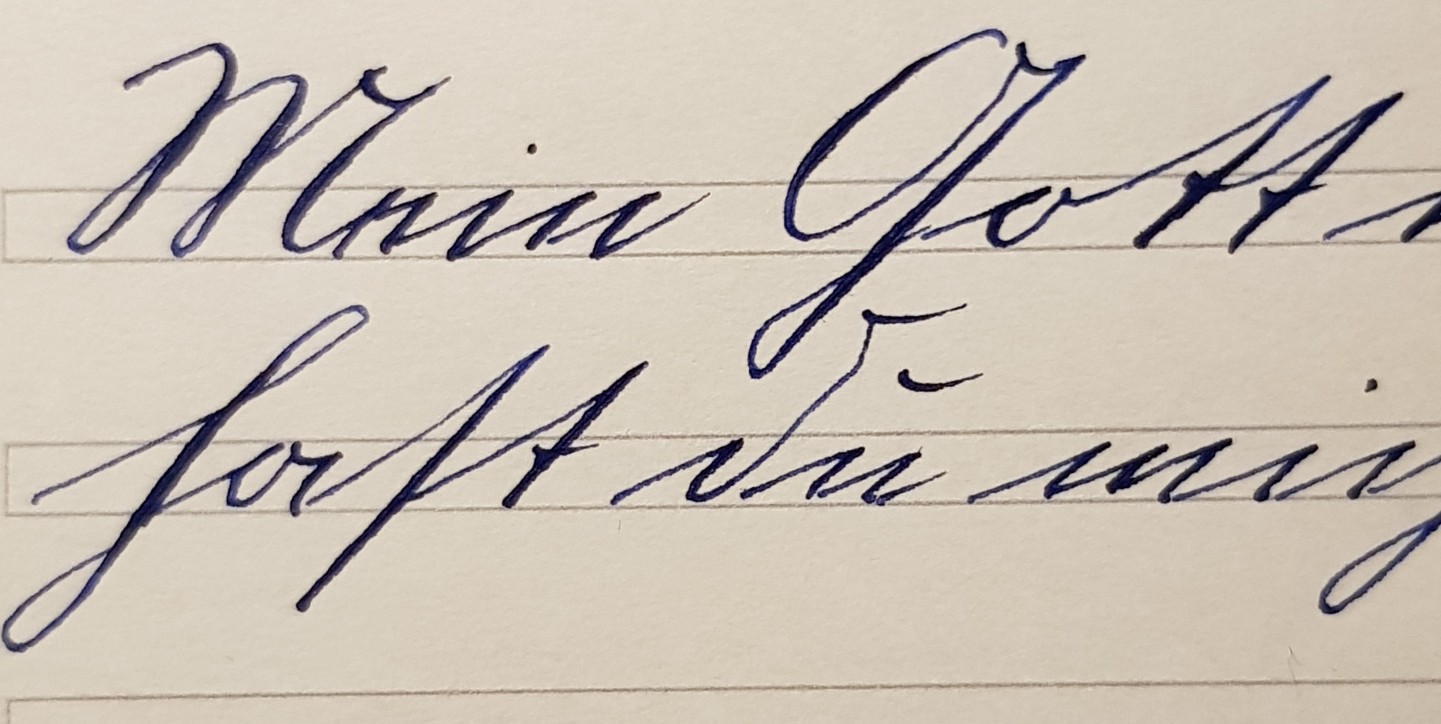 Mein Gott
hast du mich